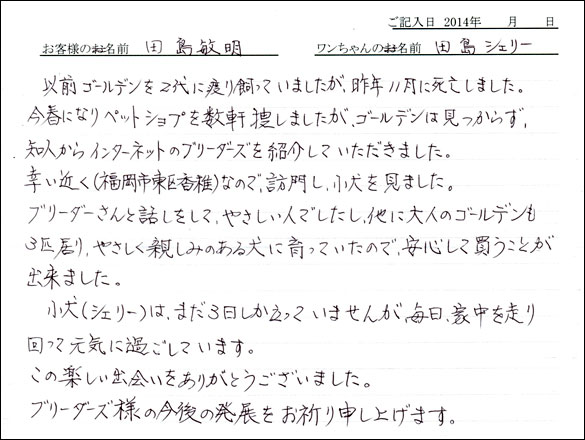 ご記入日 2014年 月 日
お客様のお名前 田島敏明 ワンちゃんのお名前 田島シェリー
以前ゴールデンを2代に渡り飼っていましたが、昨年11月に死亡しました。
今春になりペットショップを数軒捜しましたが、ゴールデンは見つからず、
知人からインターネットのブリーダーズを紹介していただきました。
幸い近く(福岡市東区香椎)なので、訪問し、小犬を見ました。
ブリーダーさんと話しをして、やさしい人でしたし、他に大人のゴールデンも
3匹居り、やさしく親しみのある犬に育っていたので、安心して買うことが
出来ました。
小犬(シェリー)は、まだ3日しかたっていませんが、毎日、家中を走り
回って元気に過ごしています。
この楽しい出会いをありがとうございました。
ブリーダーズ様の今後の発展をお祈り申し上げます。